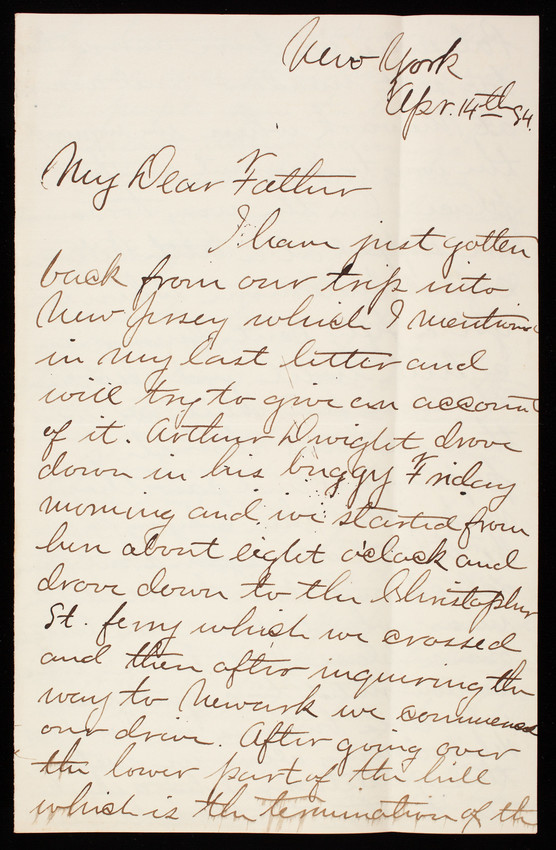 New York
Apr. 14th 84.
My Dear Father
I have just gotten
back from our trip into
New Jersey which I mentioned
in my last letter and
will try to give an account
of it. Arthur Dwight drove
down in his buggy Friday
morning and we started from
here about eight o'clock and
drove down to the Christopher
St. ferry which we crossed
and then after inquiring the
way to Newark we commenced
our drive. After going over
the lower part of the hill
which is the termination of the